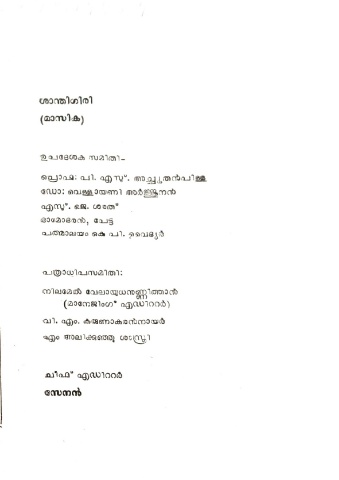 ശാന്തിഗിരി
(മാസിക)
ഉപദേശക സമിതി–
പ്രൊഫ: പി. എസ്. അച്യുതൻപിള്ള
ഡോ: വെള്ളായണി അർജ്ജുനൻ
എസ്. ജെ. ശരത്
ദാമോദരൻ, പേട്ട
പത്മാലയം കെ പി. വൈദ്യർ
പത്രാധിപസമിതി:
നിലമേൽ വേലായുധനുണ്ണിത്താൻ
(മാനേജിംഗ് എഡിററർ)
വി. എം. കരുണാകരൻനായർ
എം അലിക്കുഞ്ഞു ശാസ്ത്രി
ചീഫ് എഡിററർ
സേനൻ